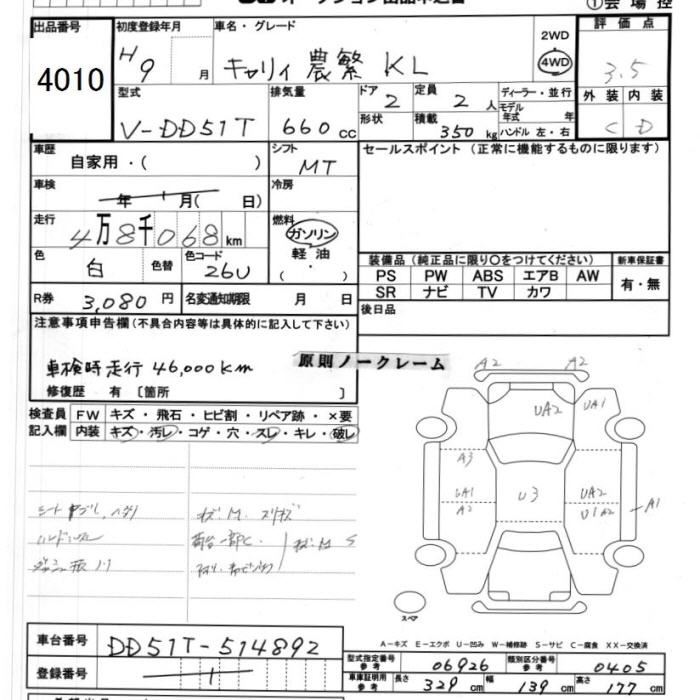 ①会場控
出品番号 初度登録年月 車名・グレード 評価点
4010 H9月 キャリィ 農繁 KL 2WD 4WD 3.5
型式 排気量 ドア 定員 ディーラー・並行 外装 内装
V-DD51T 660cc 2 2人 モデル年式 年 C D
形状 積載 350kg ハンドル 左・右
車歴 自家用・( ) シフト MT セールスポイント(正常に機能するものに限ります)
車検 年 月( 日) 冷房
走行 4万8千068km 燃料 ガソリン 軽油
色 白 色替 色コード 26U 装備品(純正品に限り○をつけてください) 新車保証書
PS PW ABS エアB AW 有・無
SR ナビ TV カワ
R券 3,080円 名変通知期限 月 日 後日品
注意事項申告欄(不具合内容等は具体的に記入して下さい)
車検時走行 46,000km
原則ノークレーム
修復歴 有 〔箇所 〕
検査員記入欄 FW キズ・飛石・ヒビ割・リペア跡・×要
内装 キズ・汚レ・コゲ・穴・スレ・キレ・破レ
A2 A2
UA2 UA1
A3
UA1 U3 UA2
A2 U1A2 A1
スペア
A-キズ E-エクボ U-凹み W-補修跡 S-サビ C-腐食 XX-交換済
車台番号 DD51T-514892
型式指定番号 参考 06926 類別区分番号 参考 0405
登録番号
車庫証明用 参考 長さ 329cm 幅 139cm 高さ 177cm